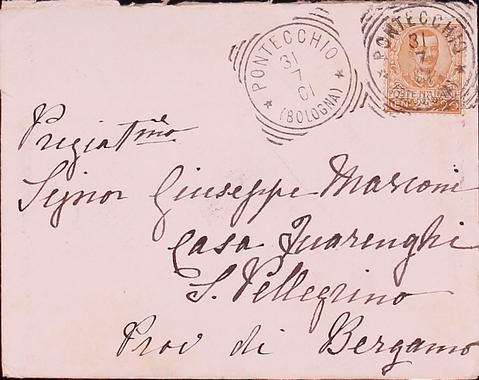 PONTECCHIO
31
7
01
(BOLOGNA)
PONTECCHIO
31
7
Pregiatmo
Signor Giuseppe Marconi
Casa Quarenghi
S. Pellegrino
Prov di Bergamo